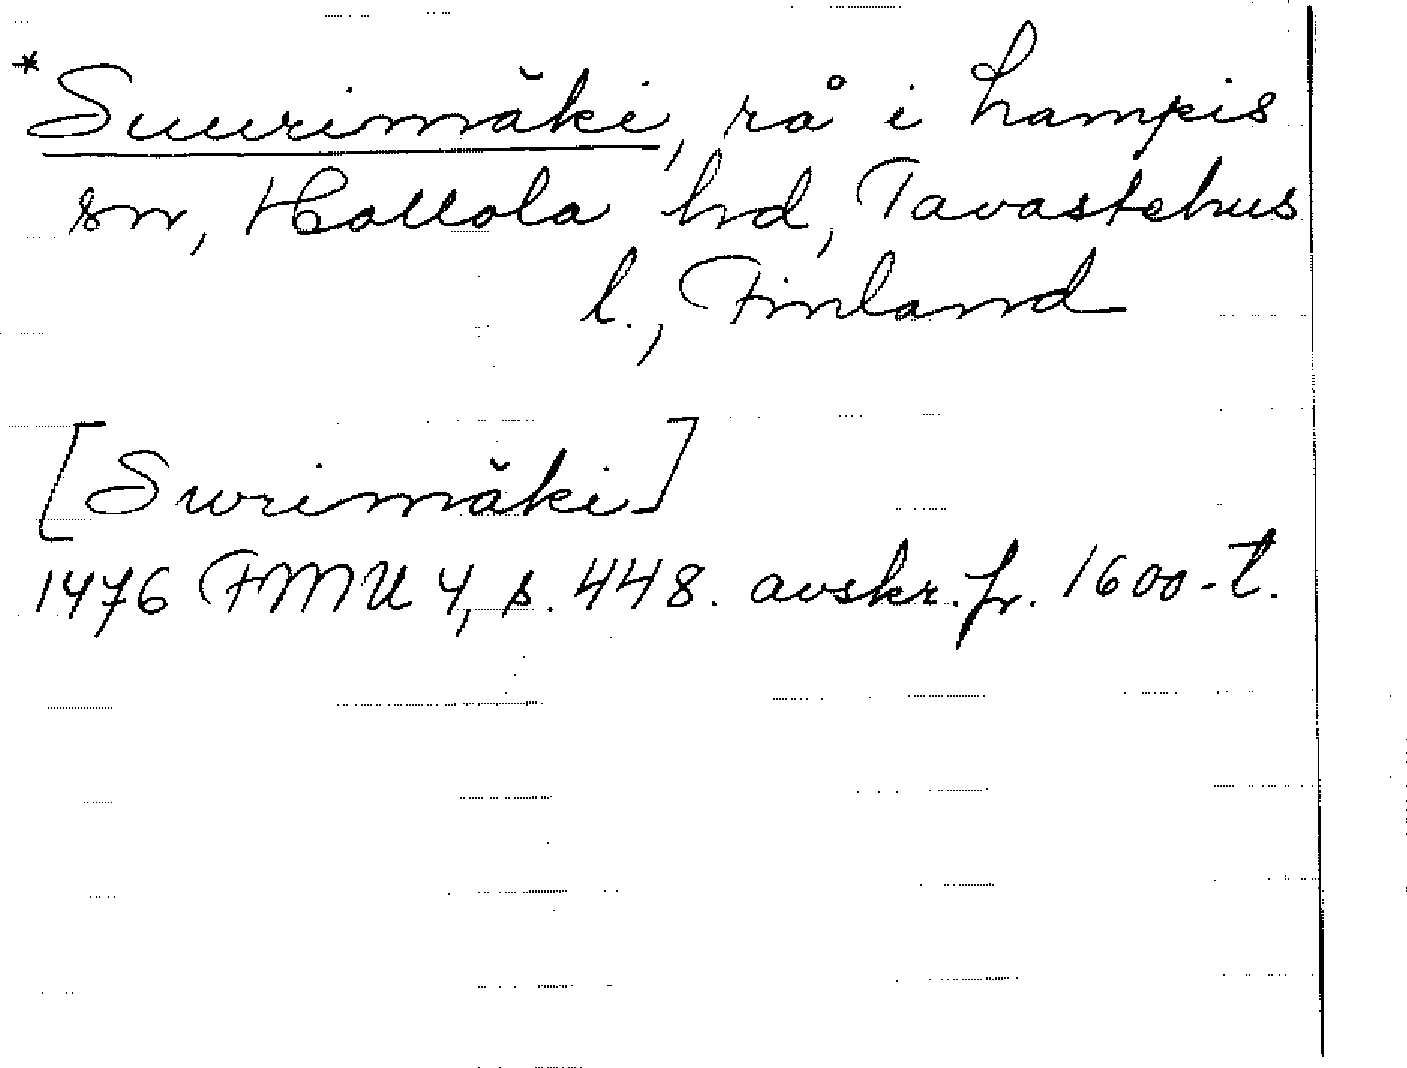 *Suurimäki, rå i Lampis
sn, Hollola hd, Tavastehus
l., Finland
[Surimäki]
1476 FMU 4, s. 448. avskr. fr. 1600-t.